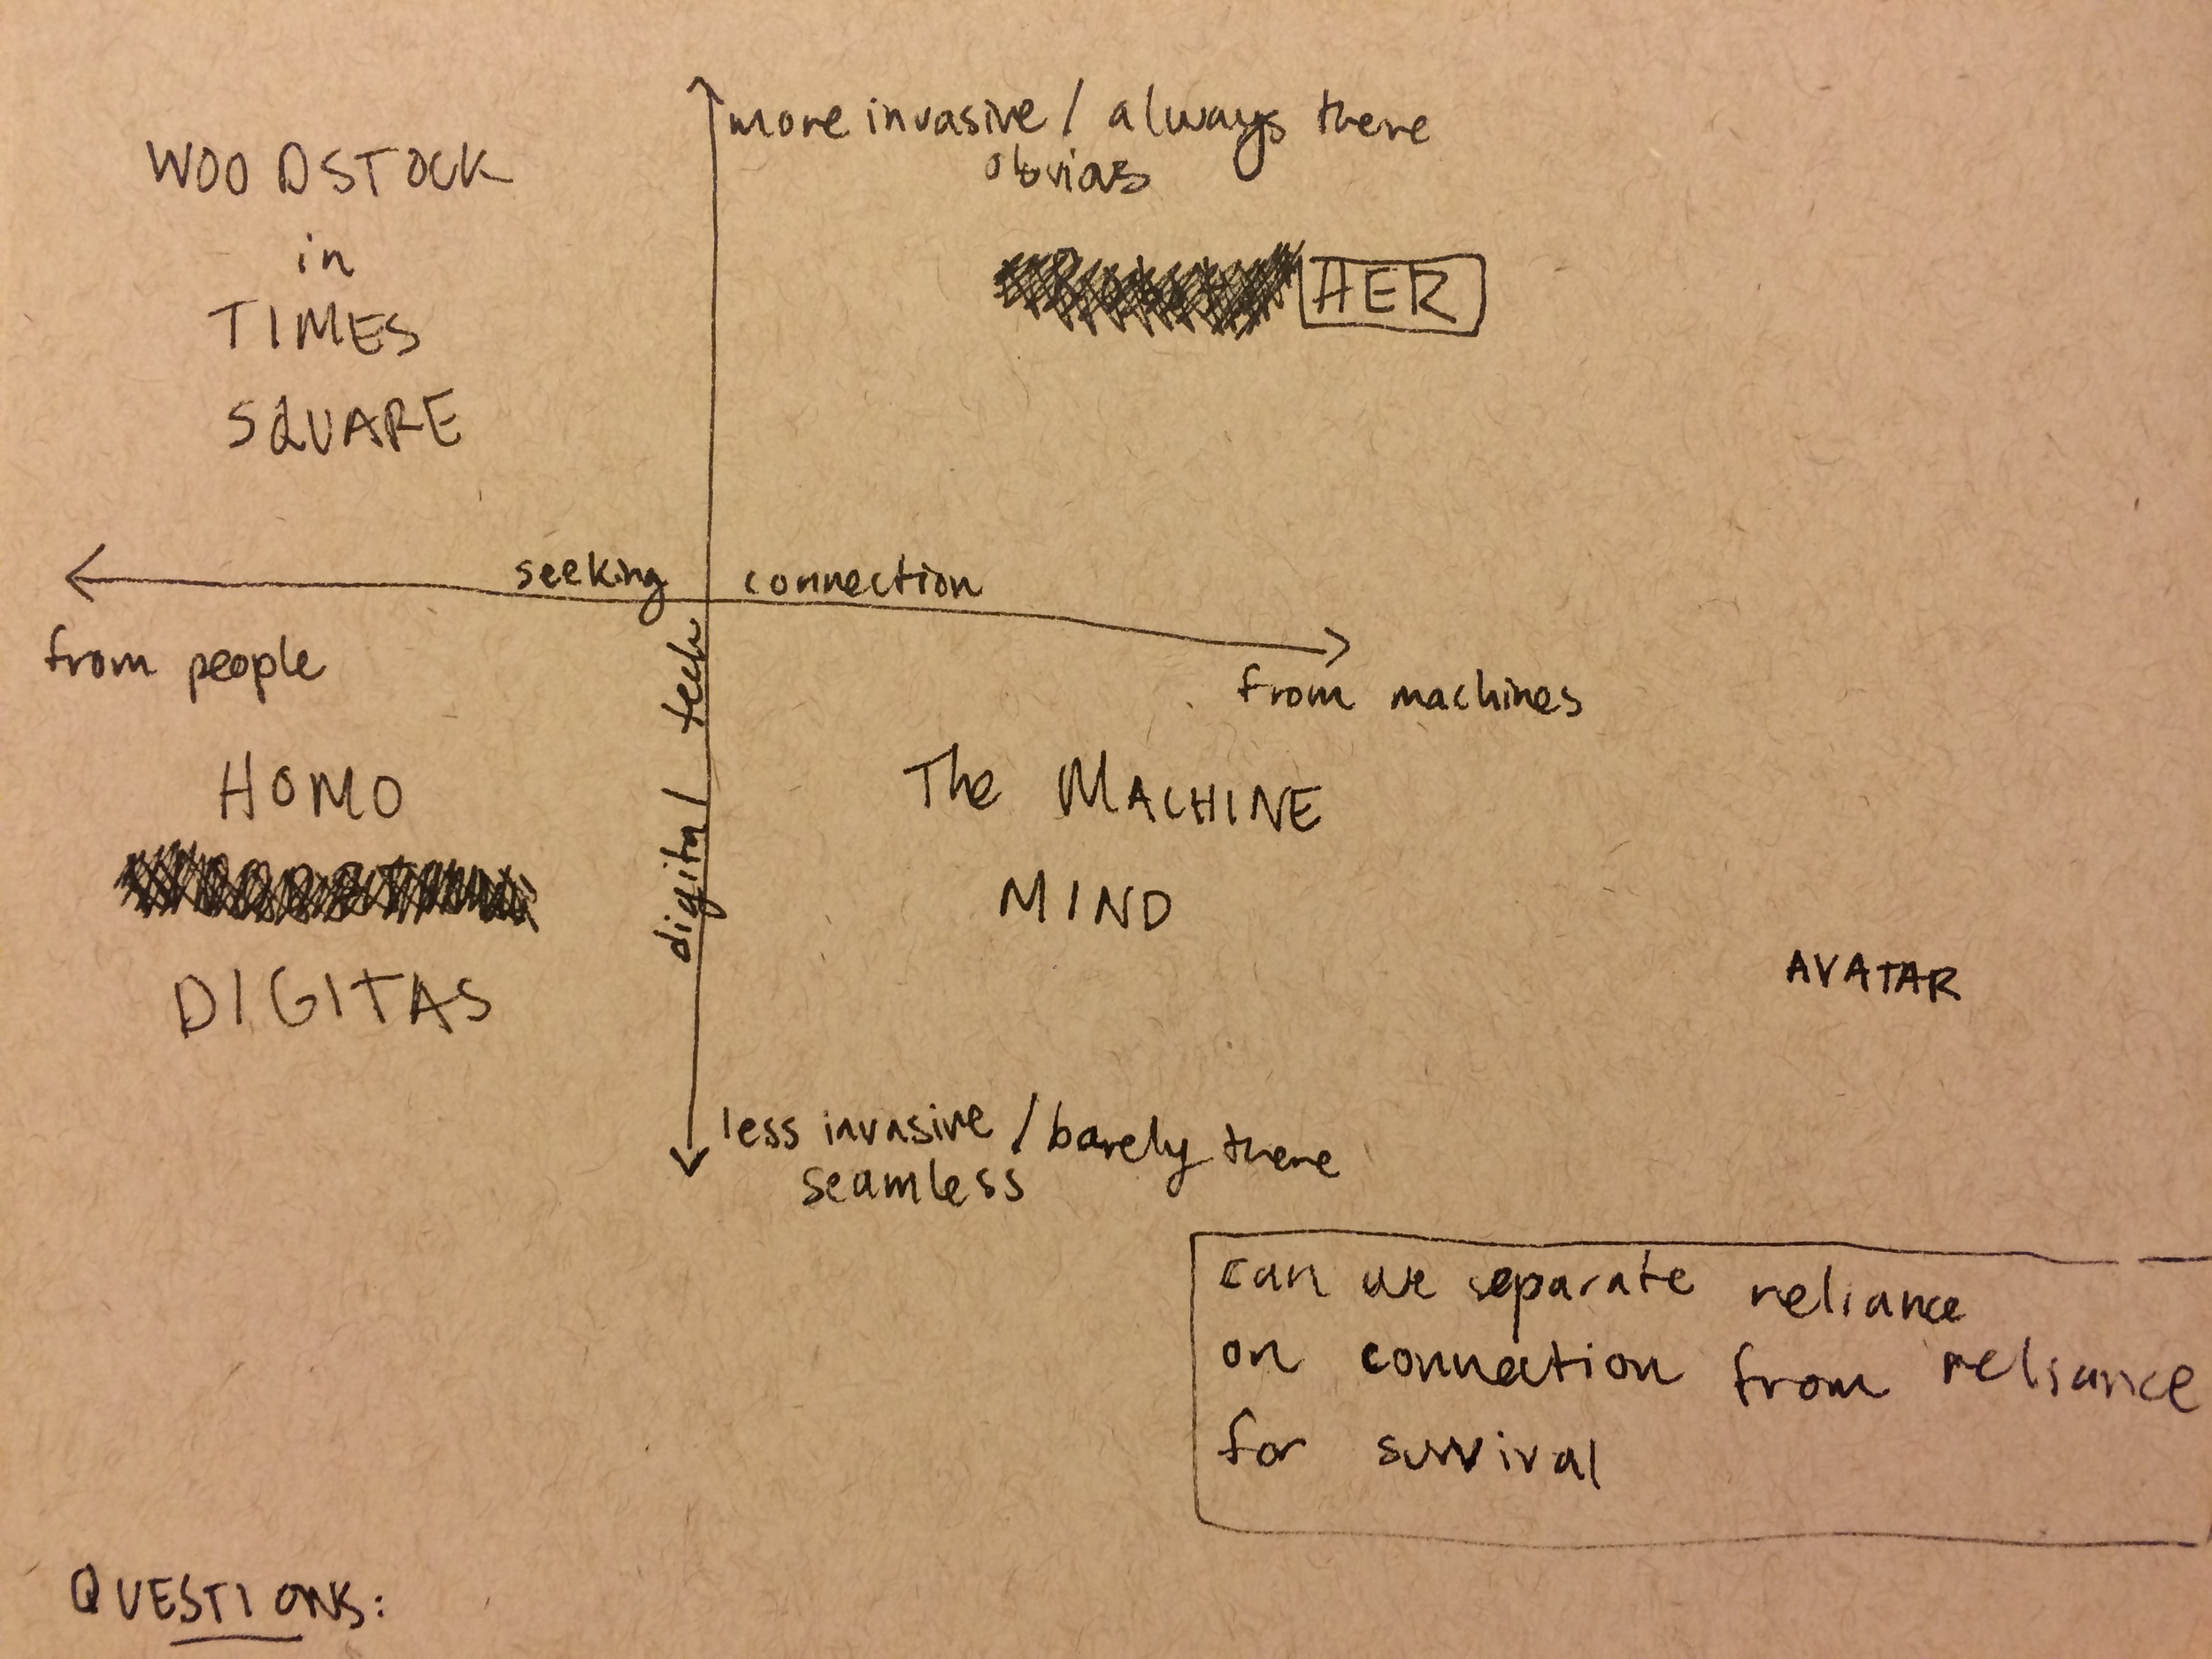 more invasive / always there
obvious
WOODSTOCK
in
TIMES
SQUARE
HER
seeking connection
from people
from machines
digital tech
HOMO
DIGITAS
The MACHINE
MIND
AVATAR
less invasive / barely there
seamless
can we separate reliance
on connection from reliance
for survival
QUESTIONS: